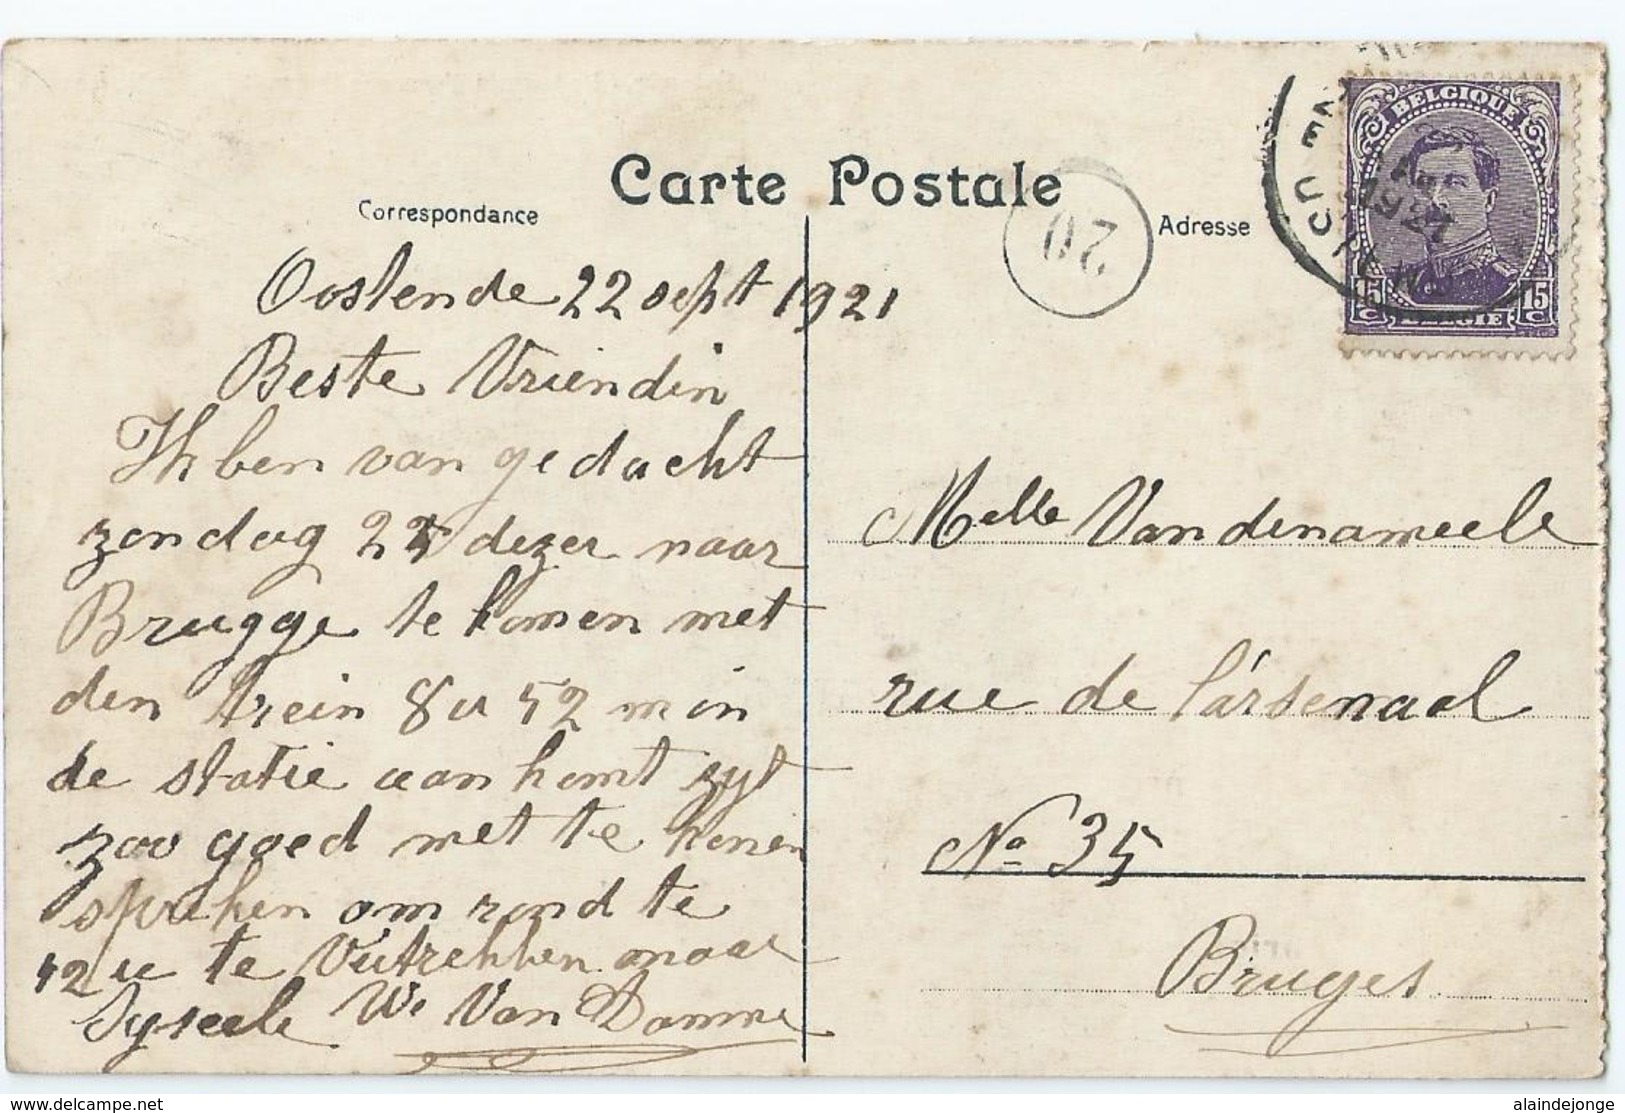 Carte Postale
Correspondance
Adresse
20
BELGIQUE
15 C
15 C
BELGIE
1921
Oostende 22 sept 1921
Beste Vriendin
Ik ben van gedacht
zondag 25 dezer naar
Brugge te komen met
den trein 8 u 52 m in
de statie aankomt zyt
zoo goed met te konen
spreken om rond te
12 u te Vuitrekken naar
Syseele W. Van Damme
Melle Vandenameele
rue de l'arsenael
No 35
Bruges
https://www.delcampe.net
alaindejonge